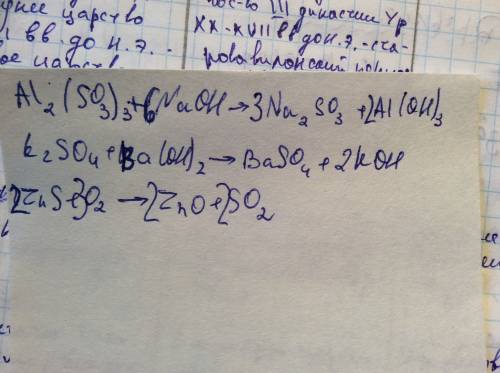 днее царство
вв. до н. э. .
III династии Ур
XX-XVII вв до н. э. - ста-
ровавилонский
Al₂(SO₃)₃+6NaOH→3Na₂SO₃+2Al(OH)₃
K₂SO₄+Ba(OH)₂→BaSO₄+2KOH
2ZnS+3O₂→2ZnO+2SO₂